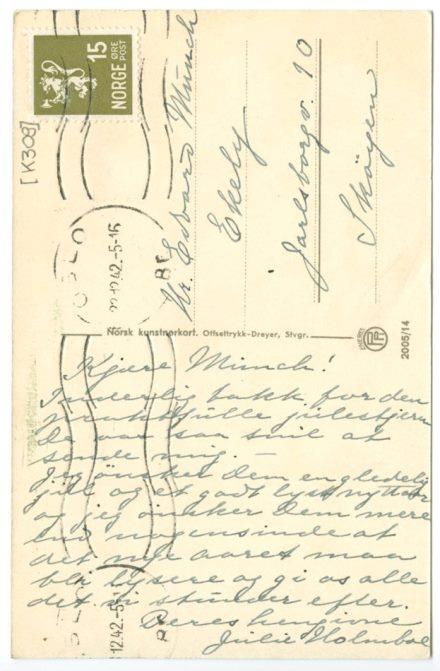 [K308]
15 ØRE
NORGE POST
OSLO
22.12.42.-5-16
BR
Hr. Edvard Munch
Ekely
Jarlsborgv. 10
Skøyen
Norsk kunstnerkort. Offsettrykk-Dreyer, Stvgr.
ENERET
PP
2005/14
Kjære Munch!
Inderlig takk for den
pragtfulle julestjerne
De var saa snil at
sende mig. —
Jeg ønsker Dem en gledelig
jul og et godt lyst nyttaar
og jeg ønsker Dem mere
end nogensinde at
det nye aaret maa
bli lysere og gi os alle
det vi stunder efter.
Deres hengivne
Julie Holmboe
12.42.-5-1